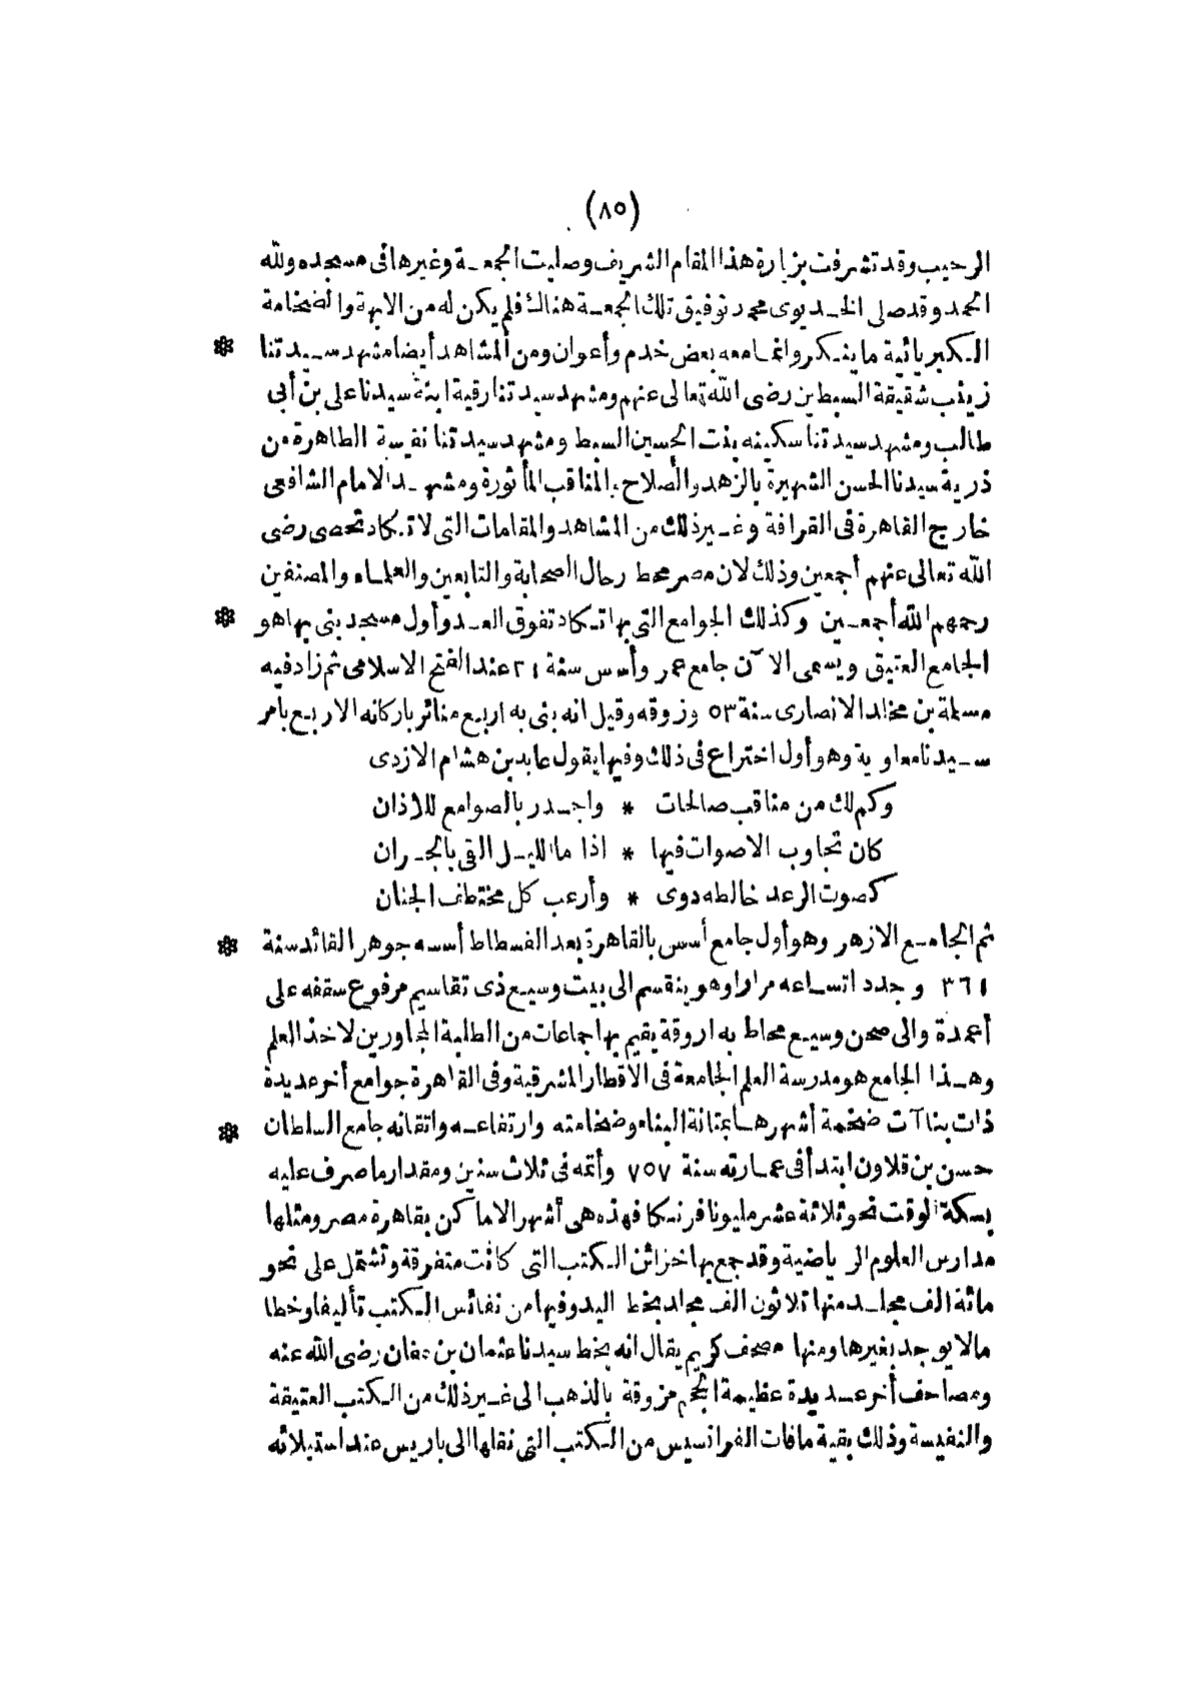 (٨٥)
الرحيب وقد تشرفت بزيارة هذا المقام الشريف وصليت الجمعة وغيرها فى مسجده ولله
الحمد وقد صلى الخديوى محمد توفيق تلك الجمعة هناك فلم يكن له من الابهة والضخامة
الكبريائية ما ينكر وانما معه بعض خدم وأعوان ومن المشاهد أيضا مشهد سيدتنا *
زينب شقيقة السبطين رضى الله تعالى عنهم ومشهد سيدتنا رقية ابنة سيدنا على بن أبى
طالب ومشهد سيدتنا سكينه بنت الحسين السبط ومشهد سيدتنا نفيسة الطاهرة من
ذرية سيدنا الحسن الشهيرة بالزهد والصلاح والمناقب المأثورة ومشهد الامام الشافعى
خارج القاهرة فى القرافة وغير ذلك من المشاهد والمقامات التى لا تكاد تحصى رضى
الله تعالى عنهم أجمعين وذلك لان مصر محط رحال الصحابة والتابعين والعلماء والمصنفين
رحمهم الله أجمعين وكذلك الجوامع التى بها تكاد تفوق العد وأول مسجد بنى بها هو *
الجامع العتيق ويسمى الآن جامع عمر وأسس سنة ٢١ عند الفتح الاسلامى ثم زاد فيه
مسلمة بن مخلد الانصارى سنة ٥٣ وزوقه وقيل انه بنى به اربع منائر باركانه الاربع بامر
سيدنا معاوية وهو أول اختراع فى ذلك وفيها يقول عابد بن هشام الازدى
وكم لك من مناقب صالحات * واجدر بالصوامع للاذان
كان تجاوب الاصوات فيها * اذا ما الليل القى بالجران
كصوت الرعد خالطه دوى * وأرعب كل مختطف الجنان
ثم الجامع الازهر وهو أول جامع أسس بالقاهرة بعد الفسطاط أسسه جوهر القائد سنة *
٣٦١ وجدد اتساعه مرارا وهو ينقسم الى بيت وسيع ذى تقاسيم مرفوع سقفه على
أعمدة والى صحن وسيع محاط به اروقة يقيم بها جماعات من الطلبة المجاورين لاخذ العلم
وهذا الجامع هو مدرسة العلم الجامعة فى الاقطار المشرقية وفى القاهرة جوامع أخر عديدة
ذات بناآت ضخمة أشهرها بمتانة البناء وضخامته وارتفاعه واتقانه جامع السلطان *
حسن بن قلاون ابتدأ فى عمارته سنة ٧٥٧ وأتمه فى ثلاث سنين ومقدار ما صرف عليه
بسكة الوقت نحو ثلاثة عشر مليونا فرنكا فهذه هى أشهر الاماكن بقاهرة مصر ومثلها
مدارس العلوم الرياضية وقد جمع بها خزائن الكتب التى كانت متفرقة وتشتمل على نحو
مائة الف مجلد منها ثلاثون الف مجلد بخط اليد وفيها من نفائس الكتب تأليفا وخطا
مالا يوجد بغيرها ومنها مصحف كريم يقال انه بخط سيدنا عثمان بن عفان رضى الله عنه
ومصاحف أخر عديدة عظيمة الحجم مزوقة بالذهب الى غير ذلك من الكتب العتيقة
والنفيسة وذلك بقية مافات الفرانسيس من الكتب التى نقلها الى باريس عند استيلائه